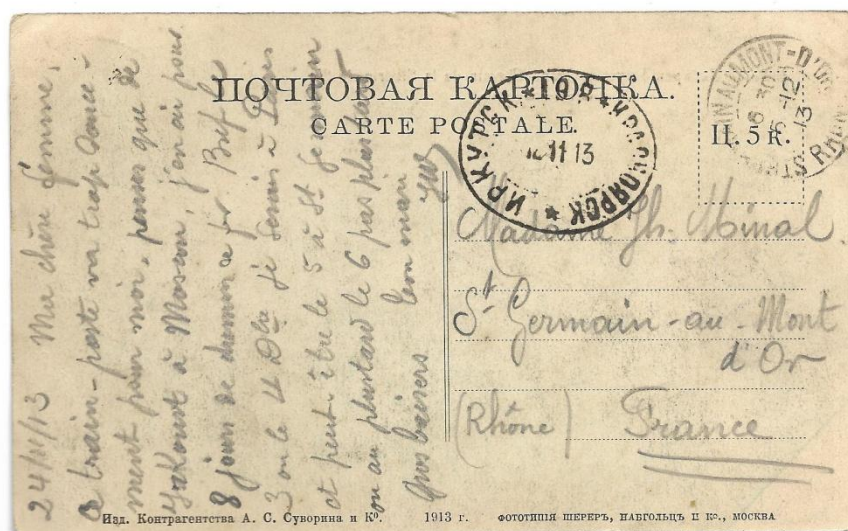 ПОЧТОВАЯ КАРТОЧКА.
CARTE POSTALE.
Ц. 5 к.
ИРКУТСК * 198 * КРАСНОЯРСК *
11 13
ST GERMAIN AU MONT-D'OR RHONE
6 -12
13
24/11/13 Ma chère femme,
Ce train-poste va trop douce-
ment pour moi, penses que de
à Moscou, j'en ai pour
8 jours de chemin de fer Bref le
3 ou le 4 Dbre je serais à Paris
et peut-être le 5 à St Germain
ou au plus tard le 6 pas plus tôt
Gros baisers ton mari
Madame Jh. Minal.
St Germain-au-Mont
d'Or
(Rhône) France
Изд. Контрагентства А. С. Суворина и Ко. 1913 г. ФОТОТИПІЯ ШЕРЕРЪ, НАБГОЛЬЦЪ И Ко., МОСКВА